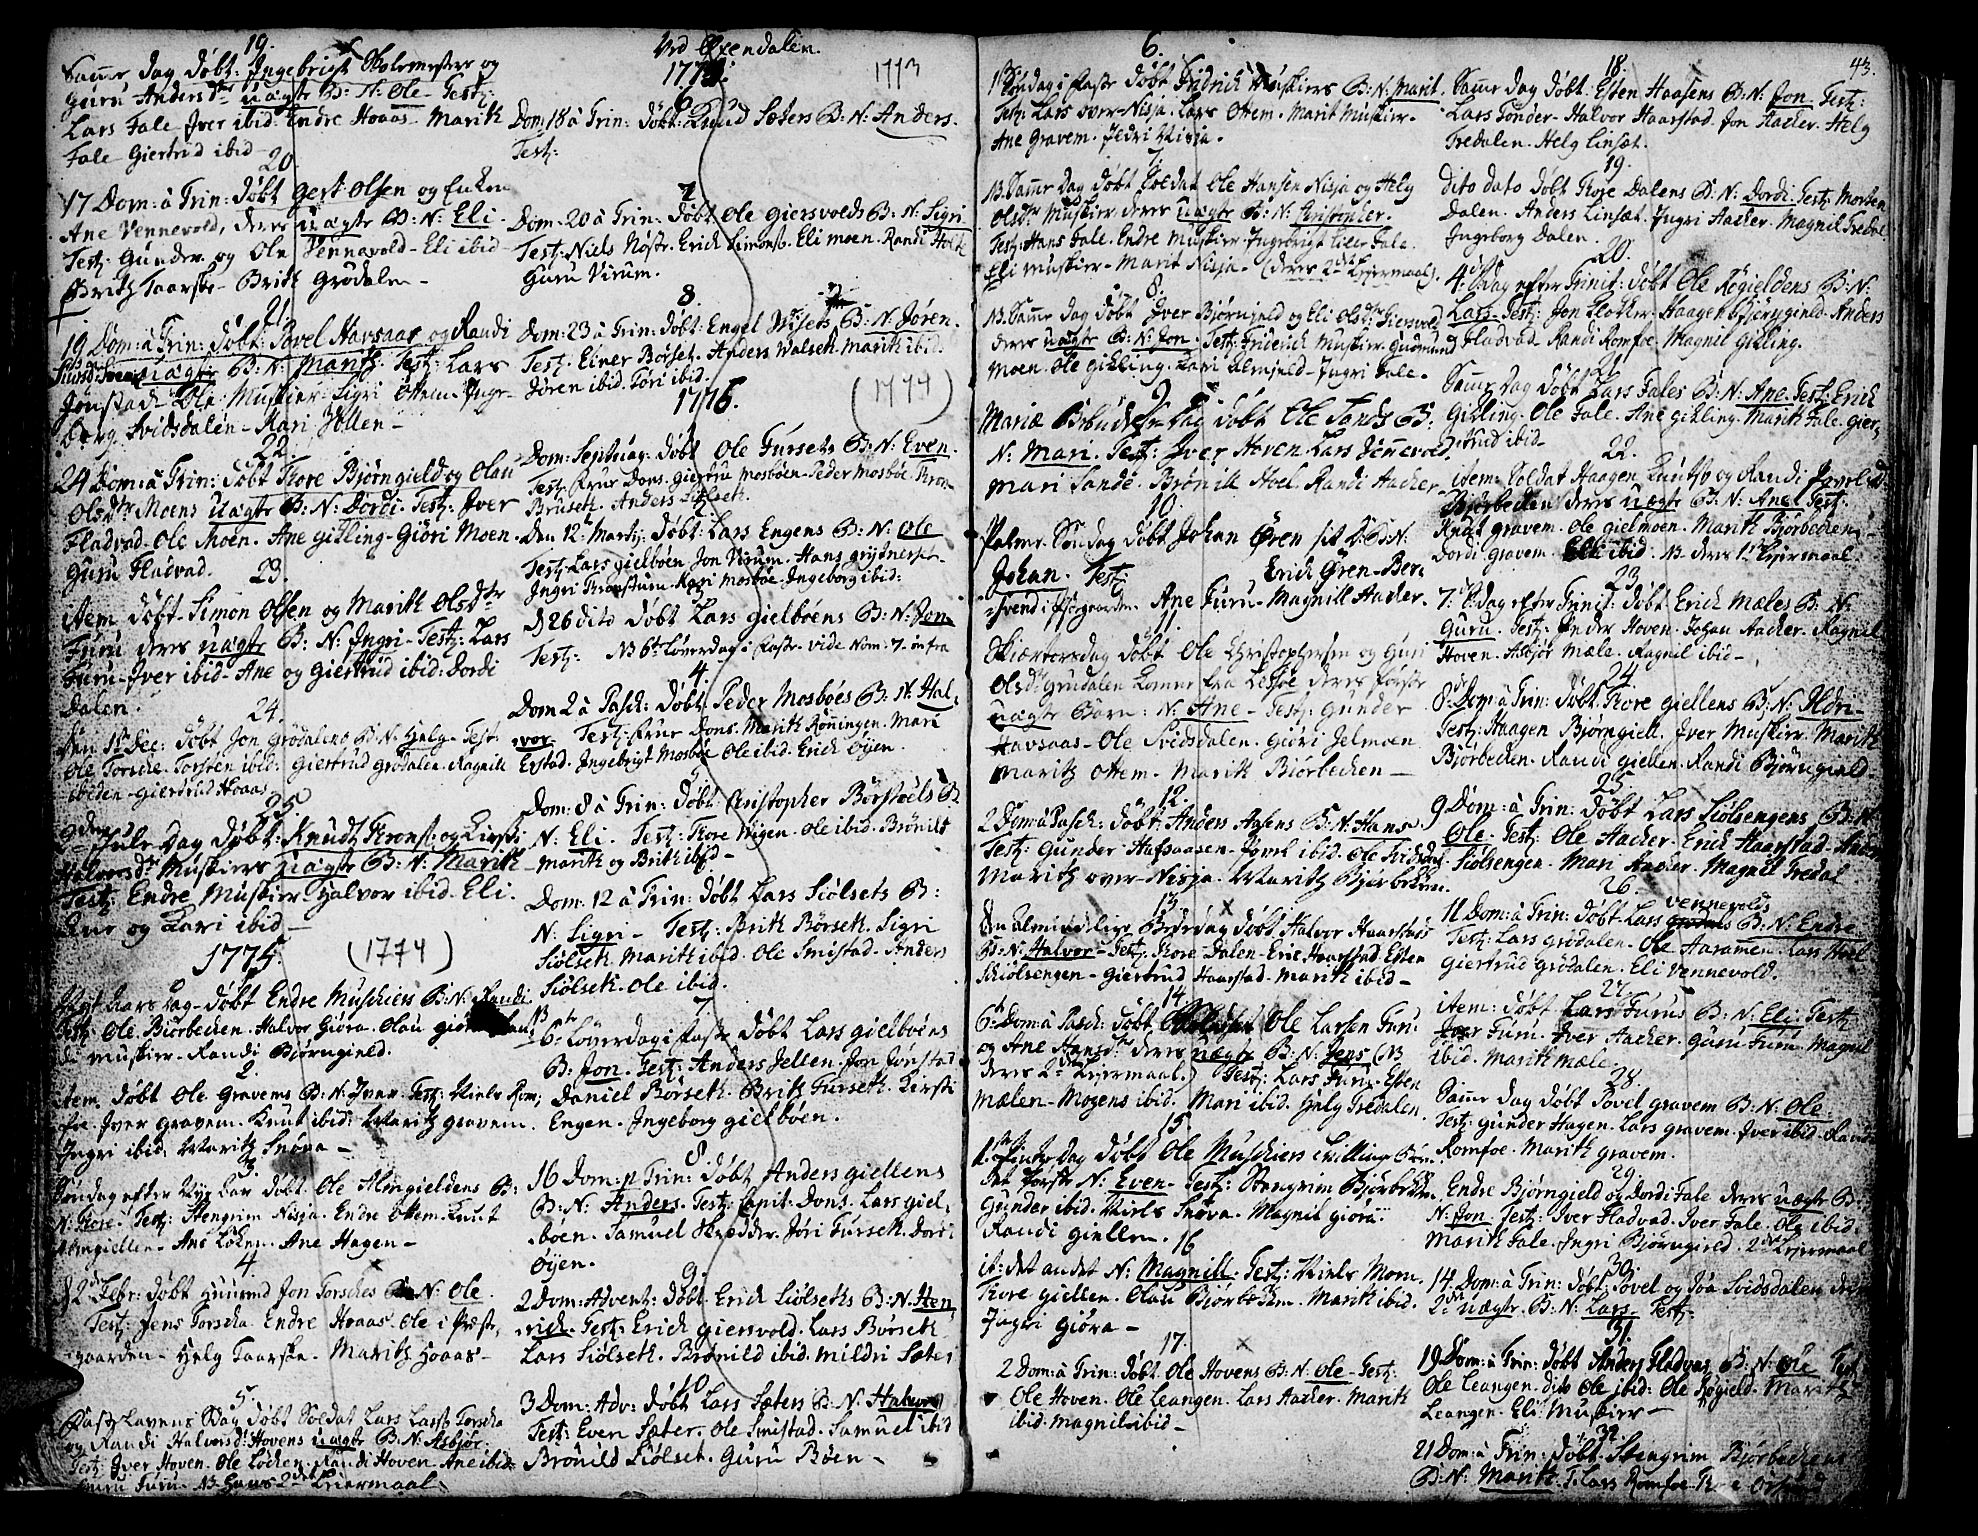 19.
Samme Dag døbt: Ingebrigt Skolemester og
Guru Andersdtr uægte B: N: Ole - Testz:
Lars Fale - Iver ibid: Endre Hoaas - Marith
Fale Giertrid ibid -
20.
17 Dom: à Trin: døbt Gest: Olsen og Enken
Ane Vennevold, deres uægte B: N: Eli.
Testz: Gunder og Ole Vennevold - Eli ibid -
Brith Taarske - Brith Grødalen -
21.
19 Dom: à Trin: døbt Povel Havsaas og Randi
uægte B: N: Marith. Testz: Lars
Jonstad - Ole Muskier - Sigri Ottem - Inge-
borg Svidsdalen - Kari Jøllen -
22.
24 Dom: à Trin: døbt Thore Biørngield og Olau
Olsdtr Moens Uægte B: N: Dordi - Testz: Iver
Fladvad. Ole Moen. Ane Gikling - Giøri Moen
Guru Fladvad.
23.
Item døbt. Simon Olsen og Marith Olsdtr
Furu deres uægte B: N: Ingri - Testz: Lars
Furu - Iver ibid - Ane og Giertrud ibid: Dordi
Dalen.
24.
den 1st Dec: døbt Jon Grødalens B: N: Helg - Test:
Ole Torske. Torsten ibid: Giertrud Grødalen. Ragnild
ibiden - Giertrud Hoaas
25
2den Jule Dag døbt: Knudt Thronss: og Kirsti
Halvorsdtr Muskiers uægte B: N: Marith -
Testz: Endre Muskier - Halvor ibid. Eli.
og Kari ibid -
1775. (1774)
Nyt Aars Dag - døbt Endre Muskiers B: N: Randi
Testz: Ole Biørbecken. Halvor Giøra. Olau Giøra
di Muskier - Randi Biørngield.
2.
Item døbt Ole Gravems B: N: Iver - Testz: Niels Rom;
foe. Iver Gravem. Knut ibid: Maritz Gravem.
Ingri ibid. Maritz Snøva -
3.
Søndag efter Nyt Aar døbt: Ole Almgieldens B:
N: Thore - Testz: Stengrim Nisja. Endre Ottem. Knut
Almgiellen - Ane Løken. Ane Hagen -
4
d 2 Febr: døbt Jon Torskes B: N: Ole.
Testz: Jens Torska. Endre Hoaas - Ole i Præste,
gaarden - Helg Taarske - Maritz Hoaas -
5.
Fastelavens Dag døbt Soldat Lars Larss: Torska
og Randi Halvorsd: Hovens uægte B: N: Asbjør:
Testz: Iver Hoven. Ole Løcken. Randi Hoven. Ane ibid:
Guru Furu. NB. Hans 2det Leiermaal.
Ved Øxendalen.
1774. 1773
6
Dom: 18 à Trin: døbt: Knud Sæters B: N: Anders.
Testz:
7
Dom: 20 à Trin: døbt Ole Giersvolds B: N: Sigri
Testz: Niels Nøste. Erich Simonst. Eli Moen. Randi
Guru Virum.
8.
Dom: 23 à Trin: døbt: Engel B: N: Jøren.
Testz: Einer Børset. Anders Walseth. Marith ibid.
Jøren ibid. Tøri ibid.
1775. (1774)
1
Dom: Septuag: døbt Ole Fursets B: N: Even.
Testz: Frue Dons. Giertru Mosbøen - Peder Mosbøe. Thron
Bruseth. Anders
2
Den 12te Martj: døbt: Lars Engens B: N: Ole
Testz: Lars Gielbøen Jon Virum. Hans
Ingri Kari Mosbøe. Ingeborg ibid:
d 26 dito døbt Lars Gielbøens B: N: Jon
Testz: NB 6te Løverdag i Faste. vide Num: 7. infra
4.
Dom 2 à Pasch: døbt. Peder Mosbøes B: N: Hal,
vor - Testz: Frue Dons. Marith Rønningen. Mari
Erstad. Ingebrigt Mosbøe Ole ibid. Erich Øyen.
5
Dom: 8 à Trin: døbt: Christopher Børstøels B:
N: Eli. Testz: Thore Wigen. Ole ibid. Brønild
Marith og Brith ibid -
6
Dom: 12 à Trin: døbt Lars Siølsets B:
N: Sigri - Testz: Brith Børseth. Sigri
Siølseth. Marith ibid. Ole Smistad. Anders
Siølseth. Ole ibid.
7.
6te Løverdag i Faste døbt Lars Gielbøens
B: Jon. Testz: Anders Jellen - Jon Jonstad
Daniel Børseth. Brith Furseth. Kirsti
Engen. Ingeborg Gielbøen.
8
16 Dom: p: Trin: døbt Anders Giellens
B: N: Anders. Testz: Capit: Dons. Lars Giel,
bøen. Samuel Skredder. Jøri Furseth. Dordi
Øyen.
9.
2 Dom: Advent: døbt. Erich Siølseths B: N: Hen
rich. Testz: Erich Giersvold. Lars Børseth.
Lars Siølseth. Brønild ibid. Mildri Sæter
10
3 Dom: Adv: døbt Lars Sæters B: N: Halvor
Testz: Even Sæter. Ole Smistad. Samuel ibid
Brønild Siølset. Guru Bøen -
6.
1 Søndag i Faste døbt Fridrich Muskiers B: N: Marit
Testz: Lars over-Nisja. Lars Ottem. Marit Muskier.
Ane Gravem. Nisja.
7.
NB. Samme Dag døbt Soldat Ole Hansen Nisja og Helg
Olsdtr Muskier deres uægte B: N: Christopher.
Testz: Hans Fale. Endre Muskier. Ingebrigt Fale.
Eli Muskier - Marit Nisja - (deres 2det Leiermaal).
8.
NB. Samme Dag døbt Iver Bjørngield og Eli Olsdtr Giersvold
deres uægte B: N: Jon. Testz: Friderich Muskier. Gudmund
Moen. Ole Gikling. Kari Almgield - Ingri Fale.
9
Mariæ Bebudelses Dag døbt Ole Sands B:
N: Mari. Testz: Iver Hoven Lars Vennevold.
Mari Sande. Brønild Hoel. Randi Aacher
10.
Palme Søndag døbt Johan Øren sit B: N:
Johan. Testz: Erich Øren - Ber:
svend i Præstegaarden. Ane Furu - Magnill Aacker.
11.
Skiærtorsdag døbt Ole Christophersen og Guri
Olsdtr Grødalen komne fra Lesjøe deres første
uægte Barn: N: Ane - Testz: Gunder
Havsaas - Ole Svidsdalen. Giøri Jelmoen
Maritz Ottem. Marith Biørbecken -
12.
2 Dom: à Pasch: døbt: Anders Aasens B: N: Hans
Testz: Gunder Hafsaasen - Povel ibid. Ole Svidsdal
Maritz over-Nisja. Maritz Bjørbecken.
13
Den Almindelige Bededag døbt Halvor Haarstads
B: N: Halvor - Testz: Thore Dalen - Eric Haarstad. Esten
Skiølsengen - Giertrud Haarstad. Marith ibid -
14
6te Dom: à Pasch: døbt Ole Larsen Furu
og Ane Hansdtr deres uægte B: N: Jens (NB
deres 2det Leiermaal.) Testz: Lars Furu. Esten
Mælen - Mogens ibid. Mari ibid. Helg Fredalen.
15
1ste Pintse Dag døbt Ole Muschiers tvilling Børn.
det første N: Even - Testz: Stengrim Bjørbecken
Gunder ibid. Niels Snøva. Magnil Giøra
Randi Giellen.
16
it: det andet N: Magnill. Testz: Niels Moen.
Thore Giellen. Olau Bjørbecken. Marith ibid.
Ingri Giøra -
17.
2 Dom: à Trin: døbt Ole Hovens B: N: Ole - Testz:
Ole Hoven. Ole Leangen. Lars Aacker. Marith
ibid. Magnil ibid -
43.
18.
Samme Dag døbt: Esten Haasens B: N: Jon Testz:
Lars Tønder - Halvor Haarstad. Jon Aacker. Helg
Fredalen. Helg Linset.
19.
dito dato døbt Thore Dalens B: N: Dordi Testz: Morten
Dalen. Anders Linset. Ingri Aacker. Magnil Fredal.
Ingeborg Dalen.
20.
4de Sødag efter Trinit: døbt Ole Røgieldens B: N:
Lars - Testz: Jon Haagen Bjørngield. Anders
Fladvad. Randi Romfoe. Magnil Gikling.
21
Samme Dag døbt Lars Fales B: N: Ane. Testz: Erich
Gikling. Ole Fale. Ane Gikling. Marith Fale. Gier,
trud ibid -
22.
item: Soldat Haagen Knuts: og Randi Povelsd:
Bjørbecken deres uægte B: N: Ane. Testz:
Knut Gravem. Ole Gielmoen. Marith Bjørbecken
Dordi Gravem. ibid. NB. deres 1ste Leiermaal.
23
7de Sødag efter Trinit: døbt Erich Mæles B: N:
Guru. Testz: Peder Hoven. Johan Aacker. Ragnil
Hoven. Asbjør Mæle. Ragnil ibid -
24
8de Dom: à Trin: døbt. Thore Giellens B: N: Aldri
Testz: Haagen Bjørngiell. Iver Muskier. Marith
Bjørbecken. Randi Giellen. Randi Bjørngield -
25
9 Dom: à Trin: døbt Lars Siølsengens B: N:
Ole. Testz: Ole Aacker. Erich Haarstad.
Siølsengen. Mari Aacker. Magnil Fredal
26
11 Dom: à Trin: døbt Lars Vennevolds B: N: Endre
Testz: Lars Grødalen. Ole Haramen. Lars Hoel
Giertrud Grødalen. Eli Vennevold.
27
item: døbt Lars Furus B: N: Eli. Testz
Iver Furu. Iver Aacker. Guru Furu. Magnil
ibid. Marith Mæle
28
Samme Dag døbt Povel Gravem B: N: Ole
Testz: Gunder Hagen. Lars Gravem. Iver ibid. Randi
Romfoe. Marith Gravem.
29
Endre Bjørngield og Dordi Fale deres uægte B:
N: Jon Testz: Iver Fladvad. Iver Fale. Ole ibid.
Marith Fale. Ingri Bjørngield. 2det Leiermaal
30
14 Dom: à Trin: døbt Povel og Svidsdalen deres
2det uægte. B: N: Lars - Testz:
31
19 Dom: à Trin: døbt Anders Fladvads B: N: Ole Testz
Ole Leangen. dito Ole ibid: Ole Røgield. Marith
Leangen. Eli Muskier -
32
21 Dom: à Trin: døbt Stengrim Bjørbeckens
B: N: Marith T: Lars Romfoe